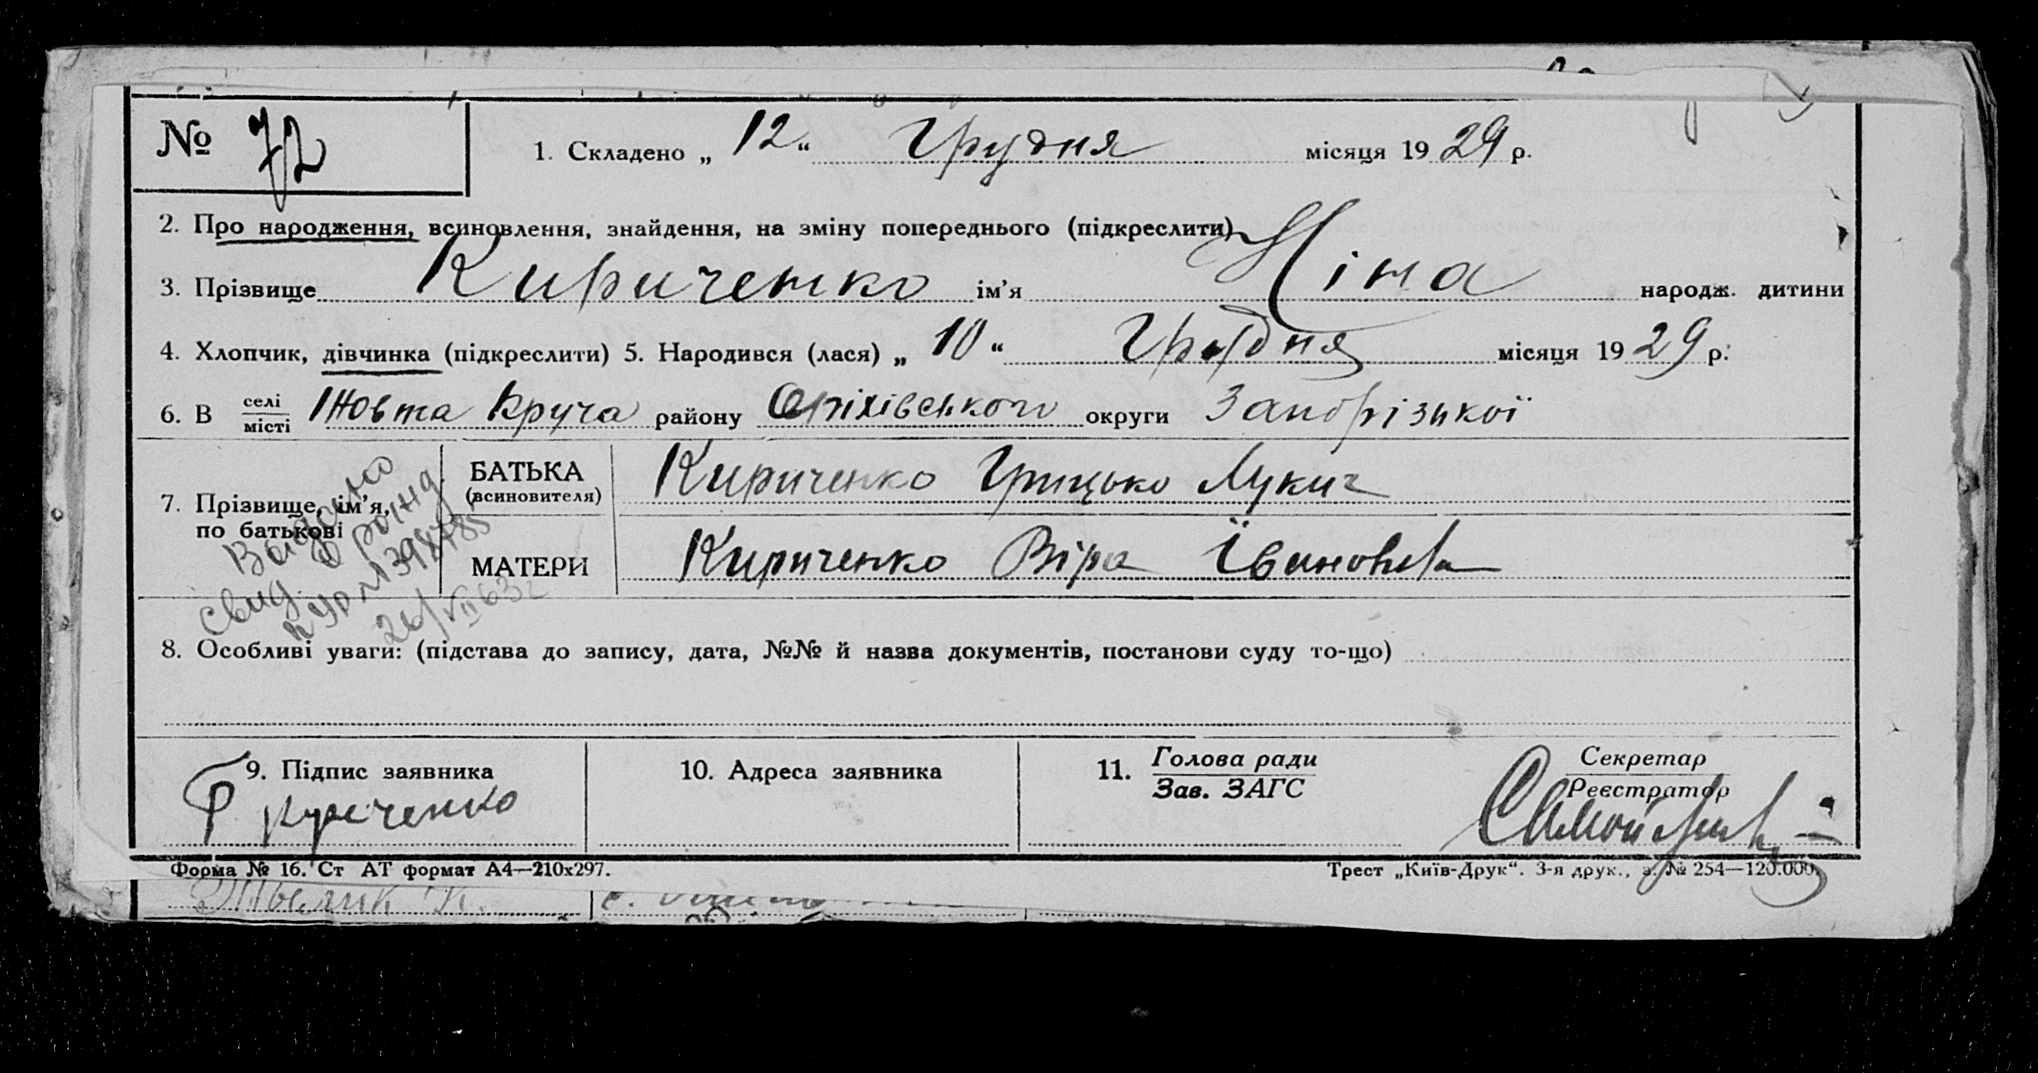 № 72
1. Складено „ 12 “ Грудня місяця 19 29 р.
2. Про народження, всиновлення, знайдення, на зміну попереднього (підкреслити)
3. Прізвище Кириченко ім’я Ніна народж. дитини
4. Хлопчик, дівчинка (підкреслити) 5. Народився (лася) „ 10 “ Грудня місяця 19 29 р.
6. В селі / місті Жовта Круча району Оріхівського округи Запорізької
7. Прізвище, ім’я, по батькові
БАТЬКА (всиновителя) Кириченко Грицько Лукич
МАТЕРИ Кириченко Віра Івановна
Выдано
свид. о рожд
26/VII 63г
8. Особливі уваги: (підстава до запису, дата, №№ й назва документів, постанови суду то-що)
9. Підпис заявника
Г Кириченко
10. Адреса заявника
11. Голова ради
Зав. ЗАГС
Секретар
Реєстратор
Форма № 16. Ст АТ формат А4—210х297.
Трест „Київ-Друк“. 3-я друк., з. № 254—120.000.